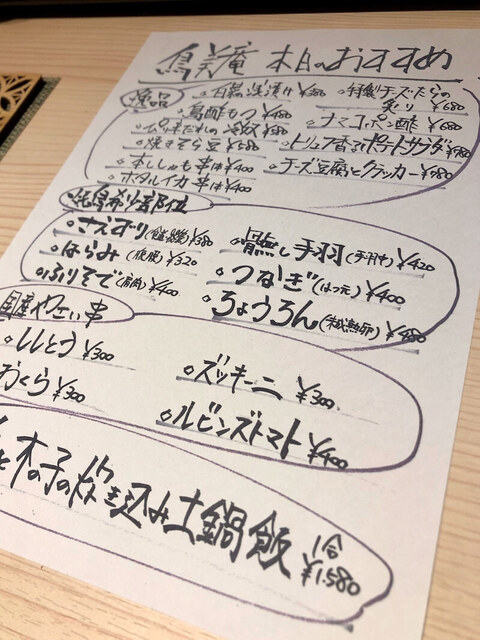 鳥美庵 本日のおすすめ
逸品
浅漬け ¥380
特製チーズたらの炙り ¥680
鳥酢もつ ¥480
ナマコポン酢 ¥680
ピリ辛だれの冷奴 ¥380
トリュフ香るポテトサラダ ¥780
焼きそら豆 ¥680
チーズ豆腐とクラッカー ¥780
本ししゃも串 1本 ¥400
ホタルイカ串 1本 ¥400
焼鳥希少部位
さえずり(食道) ¥380
骨無し手羽(手羽中) ¥420
はらみ(腹膜) ¥320
つなぎ(はつ元) ¥400
ふりそで(肩肉) ¥400
ちょうちん(未成熟卵) ¥480
国産やさい串
ししとう ¥300
ズッキーニ ¥300
おくら ¥300
ルビンズトマト ¥400
と木の子の炊き込み土鍋飯 1合 ¥1.580